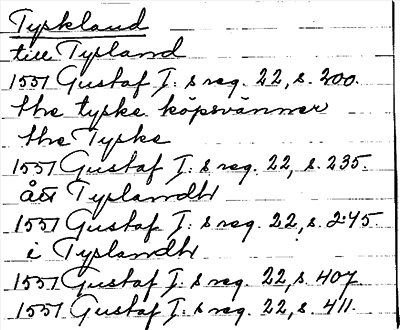 Tyskland
till Tysland
1551 Gustaf I: s reg. 22, s. 200.
the tyske köpsvänner
the Tyske
1551 Gustaf I: s reg. 22, s. 235.
ått Tyslandh
1551 Gustaf I: s reg. 22, s. 245
i Tyslandh
1551 Gustaf I: s reg. 22, s. 407
1551 Gustaf I: s reg. 22, s. 411.